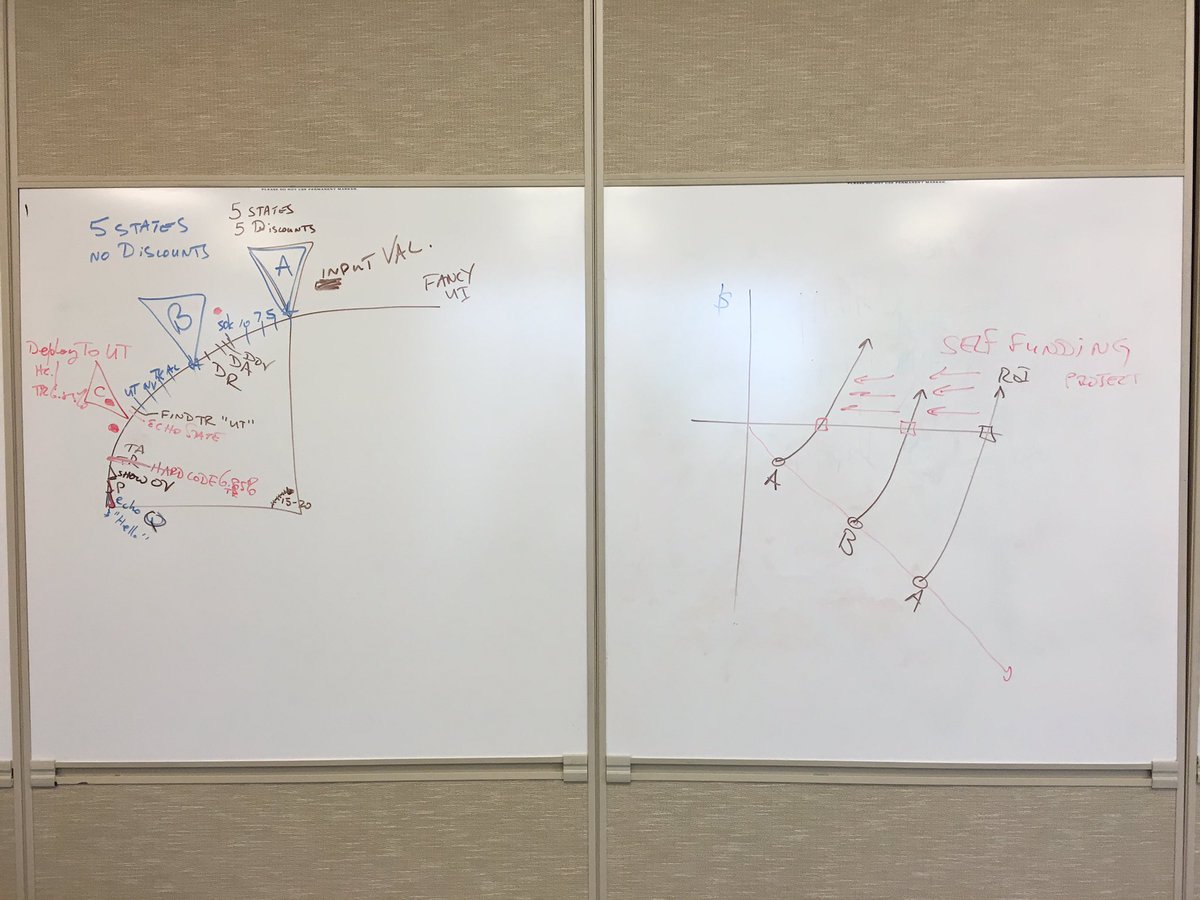 PLEASE DO NOT USE PERMANENT MARKER
5 STATES
NO DISCOUNTS
5 STATES
5 DISCOUNTS
A
INPUT VAL.
FANCY
UI
B
50K 10 7 5
D D D OV
R A
Deploy To UT
C
UT NV TX AL
FIND TR "UT"
ECHO STATE
TA
R
HARD CODE 6.85%
TR
SHOW OV
P
echo Q
"Hello"
15-20
PLEASE DO NOT USE PERMANENT MARKER
$
SELF FUNDING
PROJECT
ROI
A
B
A